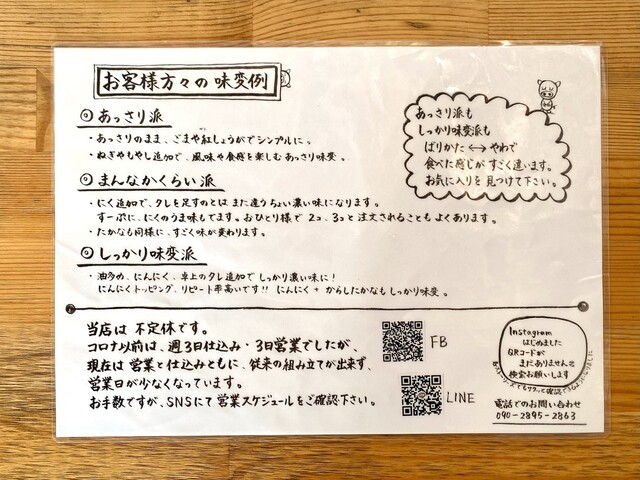 お客様方々の味変例
◎あっさり派
・あっさりのまま、ごまや紅しょうがでシンプルに。
・ねぎやもやし追加で、風味や食感を楽しむあっさり味変。
◎まんなかくらい派
・にく追加で、タレを足すのとはまた違うちょい濃い味になります。
すーぷに、にくのうま味もでます。おひとり様で2コ、3コと注文されることもよくあります。
・たかなも同様に、すごく味が変わります。
◎しっかり味変派
・油多め、にんにく、卓上のタレ追加でしっかり濃い味に!
にんにくトッピング、リピート率高いです!! にんにく+からしたかなもしっかり味変。
あっさり派も
しっかり味変派も
ばりかた↔やわで
食べた感じがすごく違います。
お気に入りを見つけて下さい。
当店は不定休です。
コロナ以前は、週3日仕込み・3日営業でしたが、
現在は営業と仕込みともに、従来の組み立てが出来ず、
営業日が少なくなっています。
お手数ですが、SNSにて営業スケジュールをご確認下さい。
FB
LINE
Instagram
はじめました
QRコードが
まだありません
検索お願いします
電話でのお問い合わせ
090-2895-2863